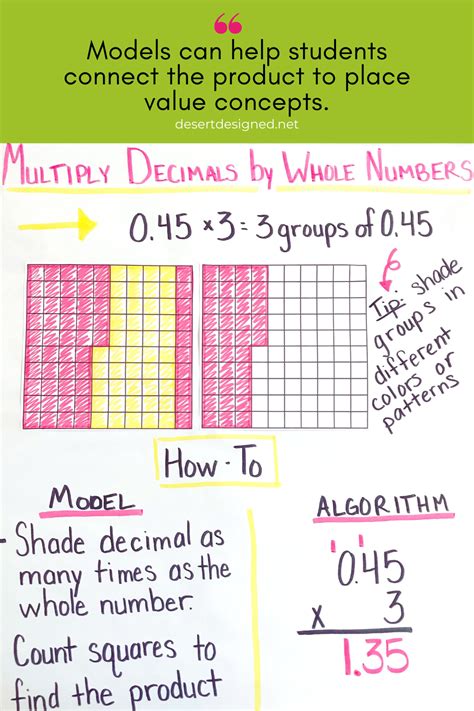 ❝
Models can help students
connect the product to place
value concepts.
desertdesigned.net
MULTIPLY DECIMALS by WHOLE NUMBERS
0.45 × 3 = 3 groups of 0.45
Tip: shade
groups in
different
colors or
patterns
How-To
MODEL
- Shade decimal as
many times as the
whole number.
Count squares to
find the product
ALGORITHM
1 1
0.45
x 3
1.35